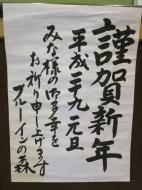 謹賀新年
平成二十九年元旦
みな様の御多幸を
お祈り申し上げます
ブルーインの森